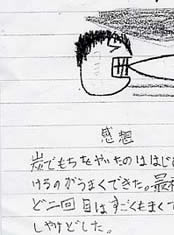 感想
炭でもちをやいたのははじ
けうのがうまくできた。最
ど二回目はすごくもまくて
しやけどした。